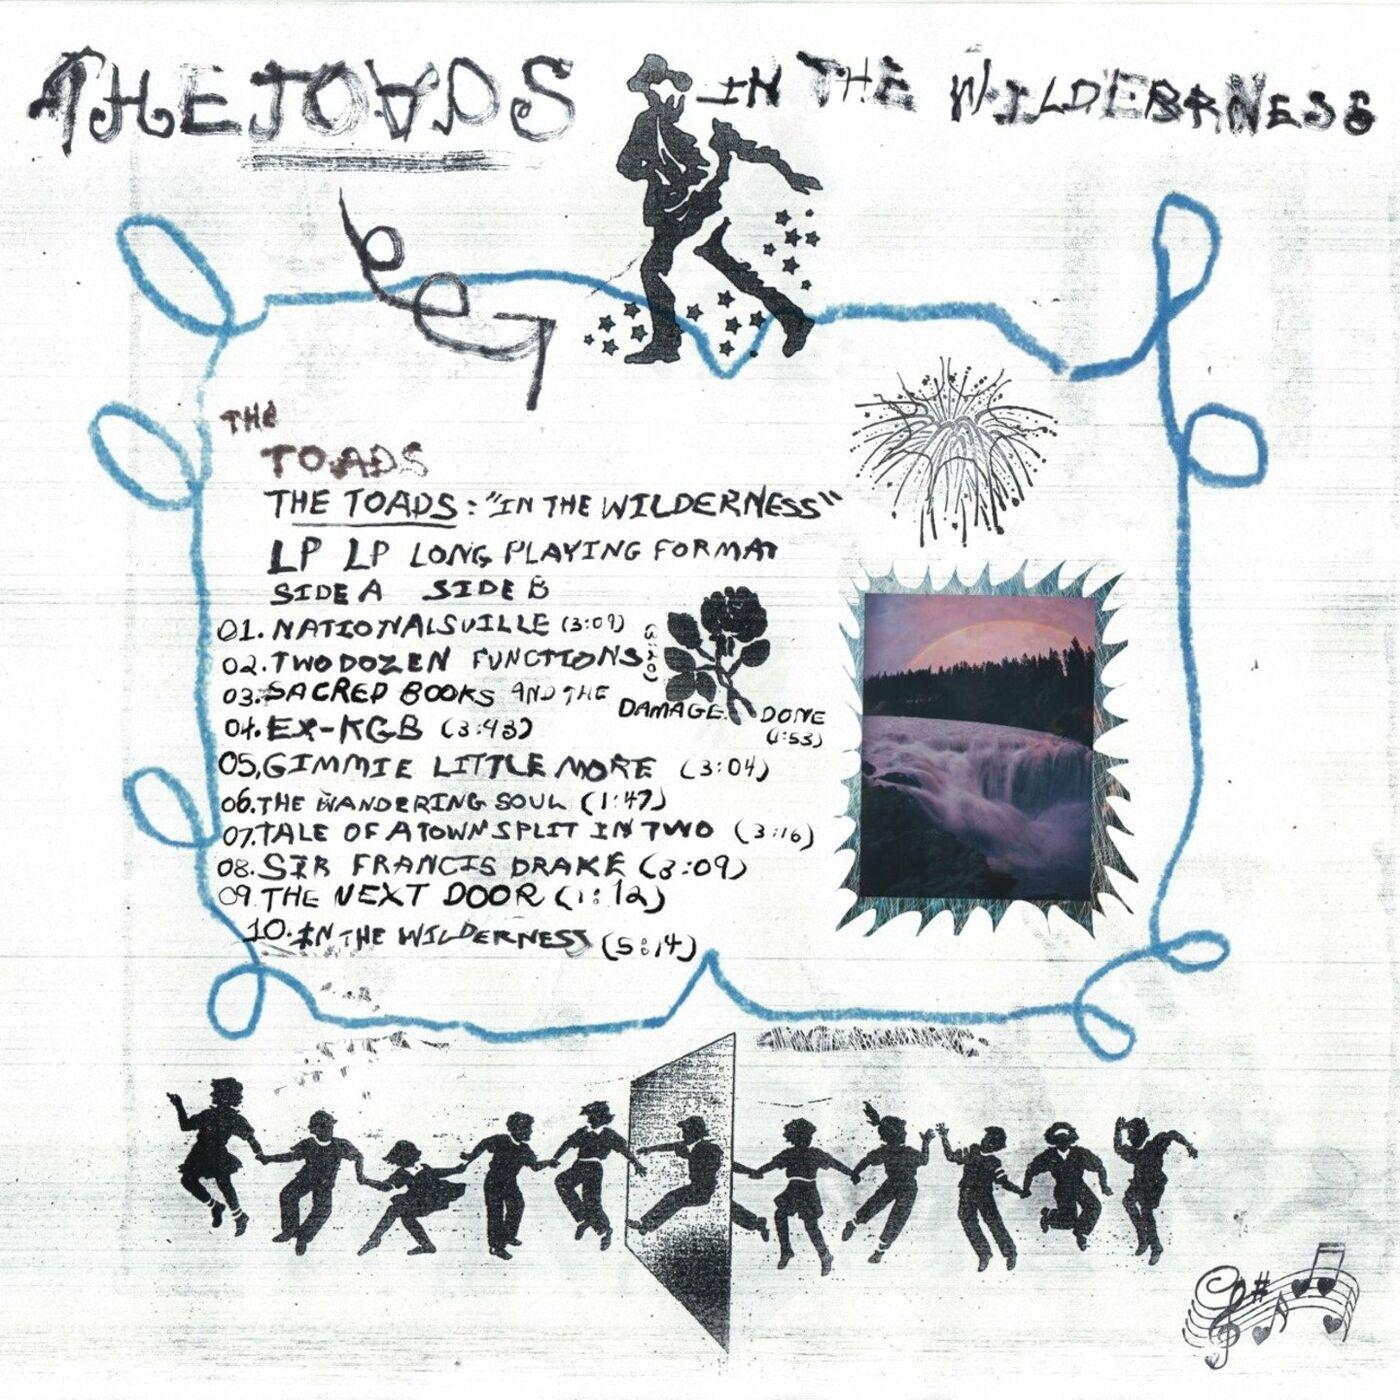 THE TOADS
IN THE WILDERNESS
THE
TOADS
THE TOADS: "IN THE WILDERNESS"
LP LP LONG PLAYING FORMAT
SIDE A SIDE B
01. NATIONALSVILLE (3:09)
02. TWO DOZEN FUNCTIONS
03. SACRED BOOKS AND THE DAMAGE DONE (1:53)
04. EX-KGB (3:43)
05. GIMMIE LITTLE MORE (3:04)
06. THE WANDERING SOUL (1:47)
07. TALE OF A TOWN SPLIT IN TWO (3:16)
08. SIR FRANCIS DRAKE (3:09)
09. THE NEXT DOOR (1:12)
10. IN THE WILDERNESS (5:14)